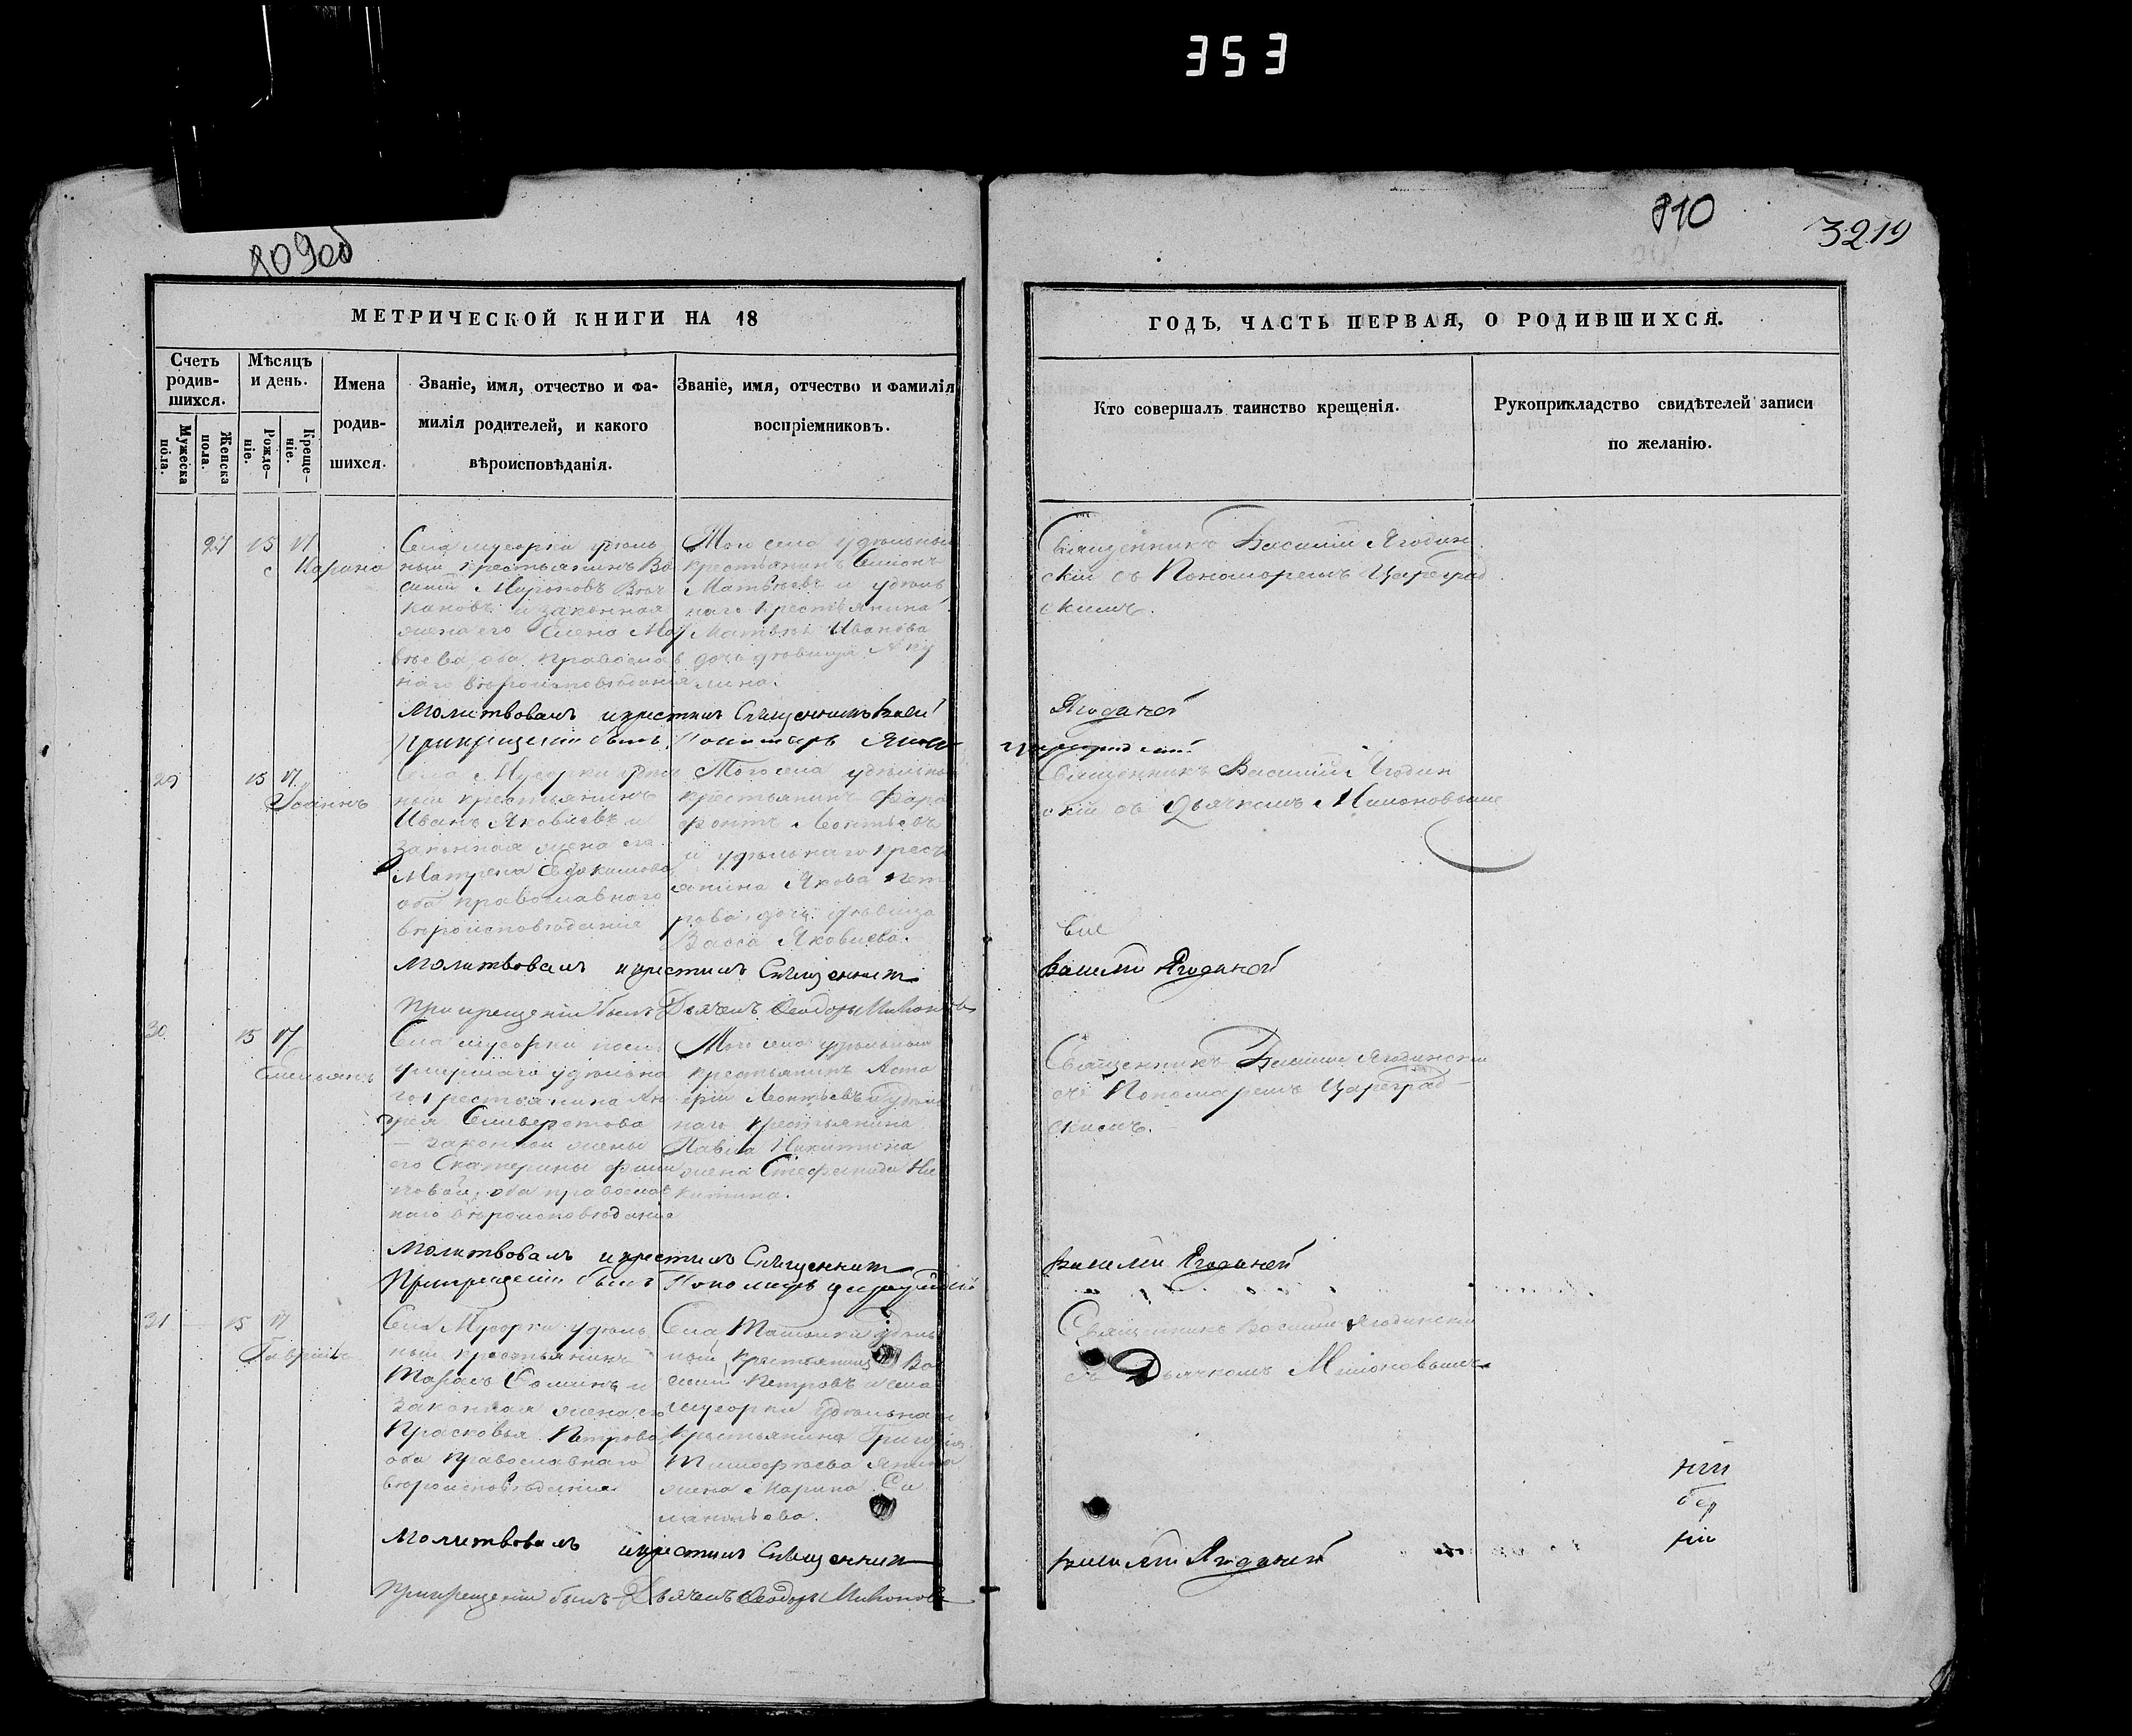 353
809об
810
3219
МЕТРИЧЕСКОЙ КНИГИ НА 18
ГОДЪ, ЧАСТЬ ПЕРВАЯ, О РОДИВШИХСЯ.
Счетъ родив-шихся.
Мужеска пола.
Женска пола.
Мѣсяцъ и день.
Рожде-ніе.
Креще-ніе.
Имена родив-шихся.
Званіе, имя, отчество и фа-
милія родителей, и какого
вѣроисповѣданія.
Званіе, имя, отчество и фамилія
воспріемниковъ.
Кто совершалъ таинство крещенія.
Рукоприкладство свидѣтелей записи
по желанію.
27 15 17
Марина
Села Мусорки удѣль
ный крестьянинъ Ва
силій Мироновъ
и законная
жена его Елена Мат
вѣева, оба православ
наго вѣроисповѣданія
Того села удѣльный
крестьянинъ Симіонъ
Матвѣевъ и удѣль
наго крестьянина
Матвѣя Иванова
дочь дѣвица Аку
лина.
Священникъ Василій Ягодин
скій съ Пономаремъ Цареград
скимъ.
Молитвовалъ и крестилъ Священникъ
Ягодинской
При крещеніи былъ Пономарь
29 15 17
Іоаннъ
Села Мусорки удѣль
ный крестьянинъ
Иванъ Яковлевъ и
законная жена его
Матрена Евдокимова
оба православнаго
вѣроисповѣданія
Того села удѣльный
крестьянинъ Фара
фонтъ Леонтьевъ
и удѣльнаго крест
янина Якова Пет
рова, дочь дѣвица
Васса Яковлева.
Священникъ Василій Ягодин
скій съ Дьячкомъ Милоновымъ
Молитвовалъ и крестилъ Священникъ
Василій Ягодинской
При крещеніи былъ Дьячекъ Ѳеодоръ Милоновъ
30 15 17
Емельянъ
Села Мусорки послѣ
умершаго удѣльна
го крестьянина Ан
дрея Селиверстова
законной жены
его Екатерины Филип
повой, оба православ
наго вѣроисповѣданія
Того села удѣльный
крестьянинъ Аста
ерій Леонтьевъ и удѣль
наго крестьянина
Павла Никитина
жена Стефанида Ни
китина.
Священникъ Василій Ягодинскій
съ Пономаремъ Цареград
скимъ.
Молитвовалъ и крестилъ Священникъ
Василій Ягодинской
При крещеніи былъ Пономарь
31 15 17
Гавріилъ
Села Мусорки удѣль
ный крестьянинъ
Тарасъ Соминъ и
законная жена его
Прасковья Петрова
оба православнаго
вѣроисповѣданія
Села Ташолки удѣль
ный крестьянинъ Ва
силій Петровъ и села
Мусорки удѣльнаго
крестьянина Григорія
Тимофѣева
жена Марина
Священникъ Василій Ягодинскій
съ Дьячкомъ Милоновымъ
Молитвовалъ и крестилъ Священникъ
Василій Ягодинской
При крещеніи былъ Дьячекъ Ѳеодоръ Милоновъ